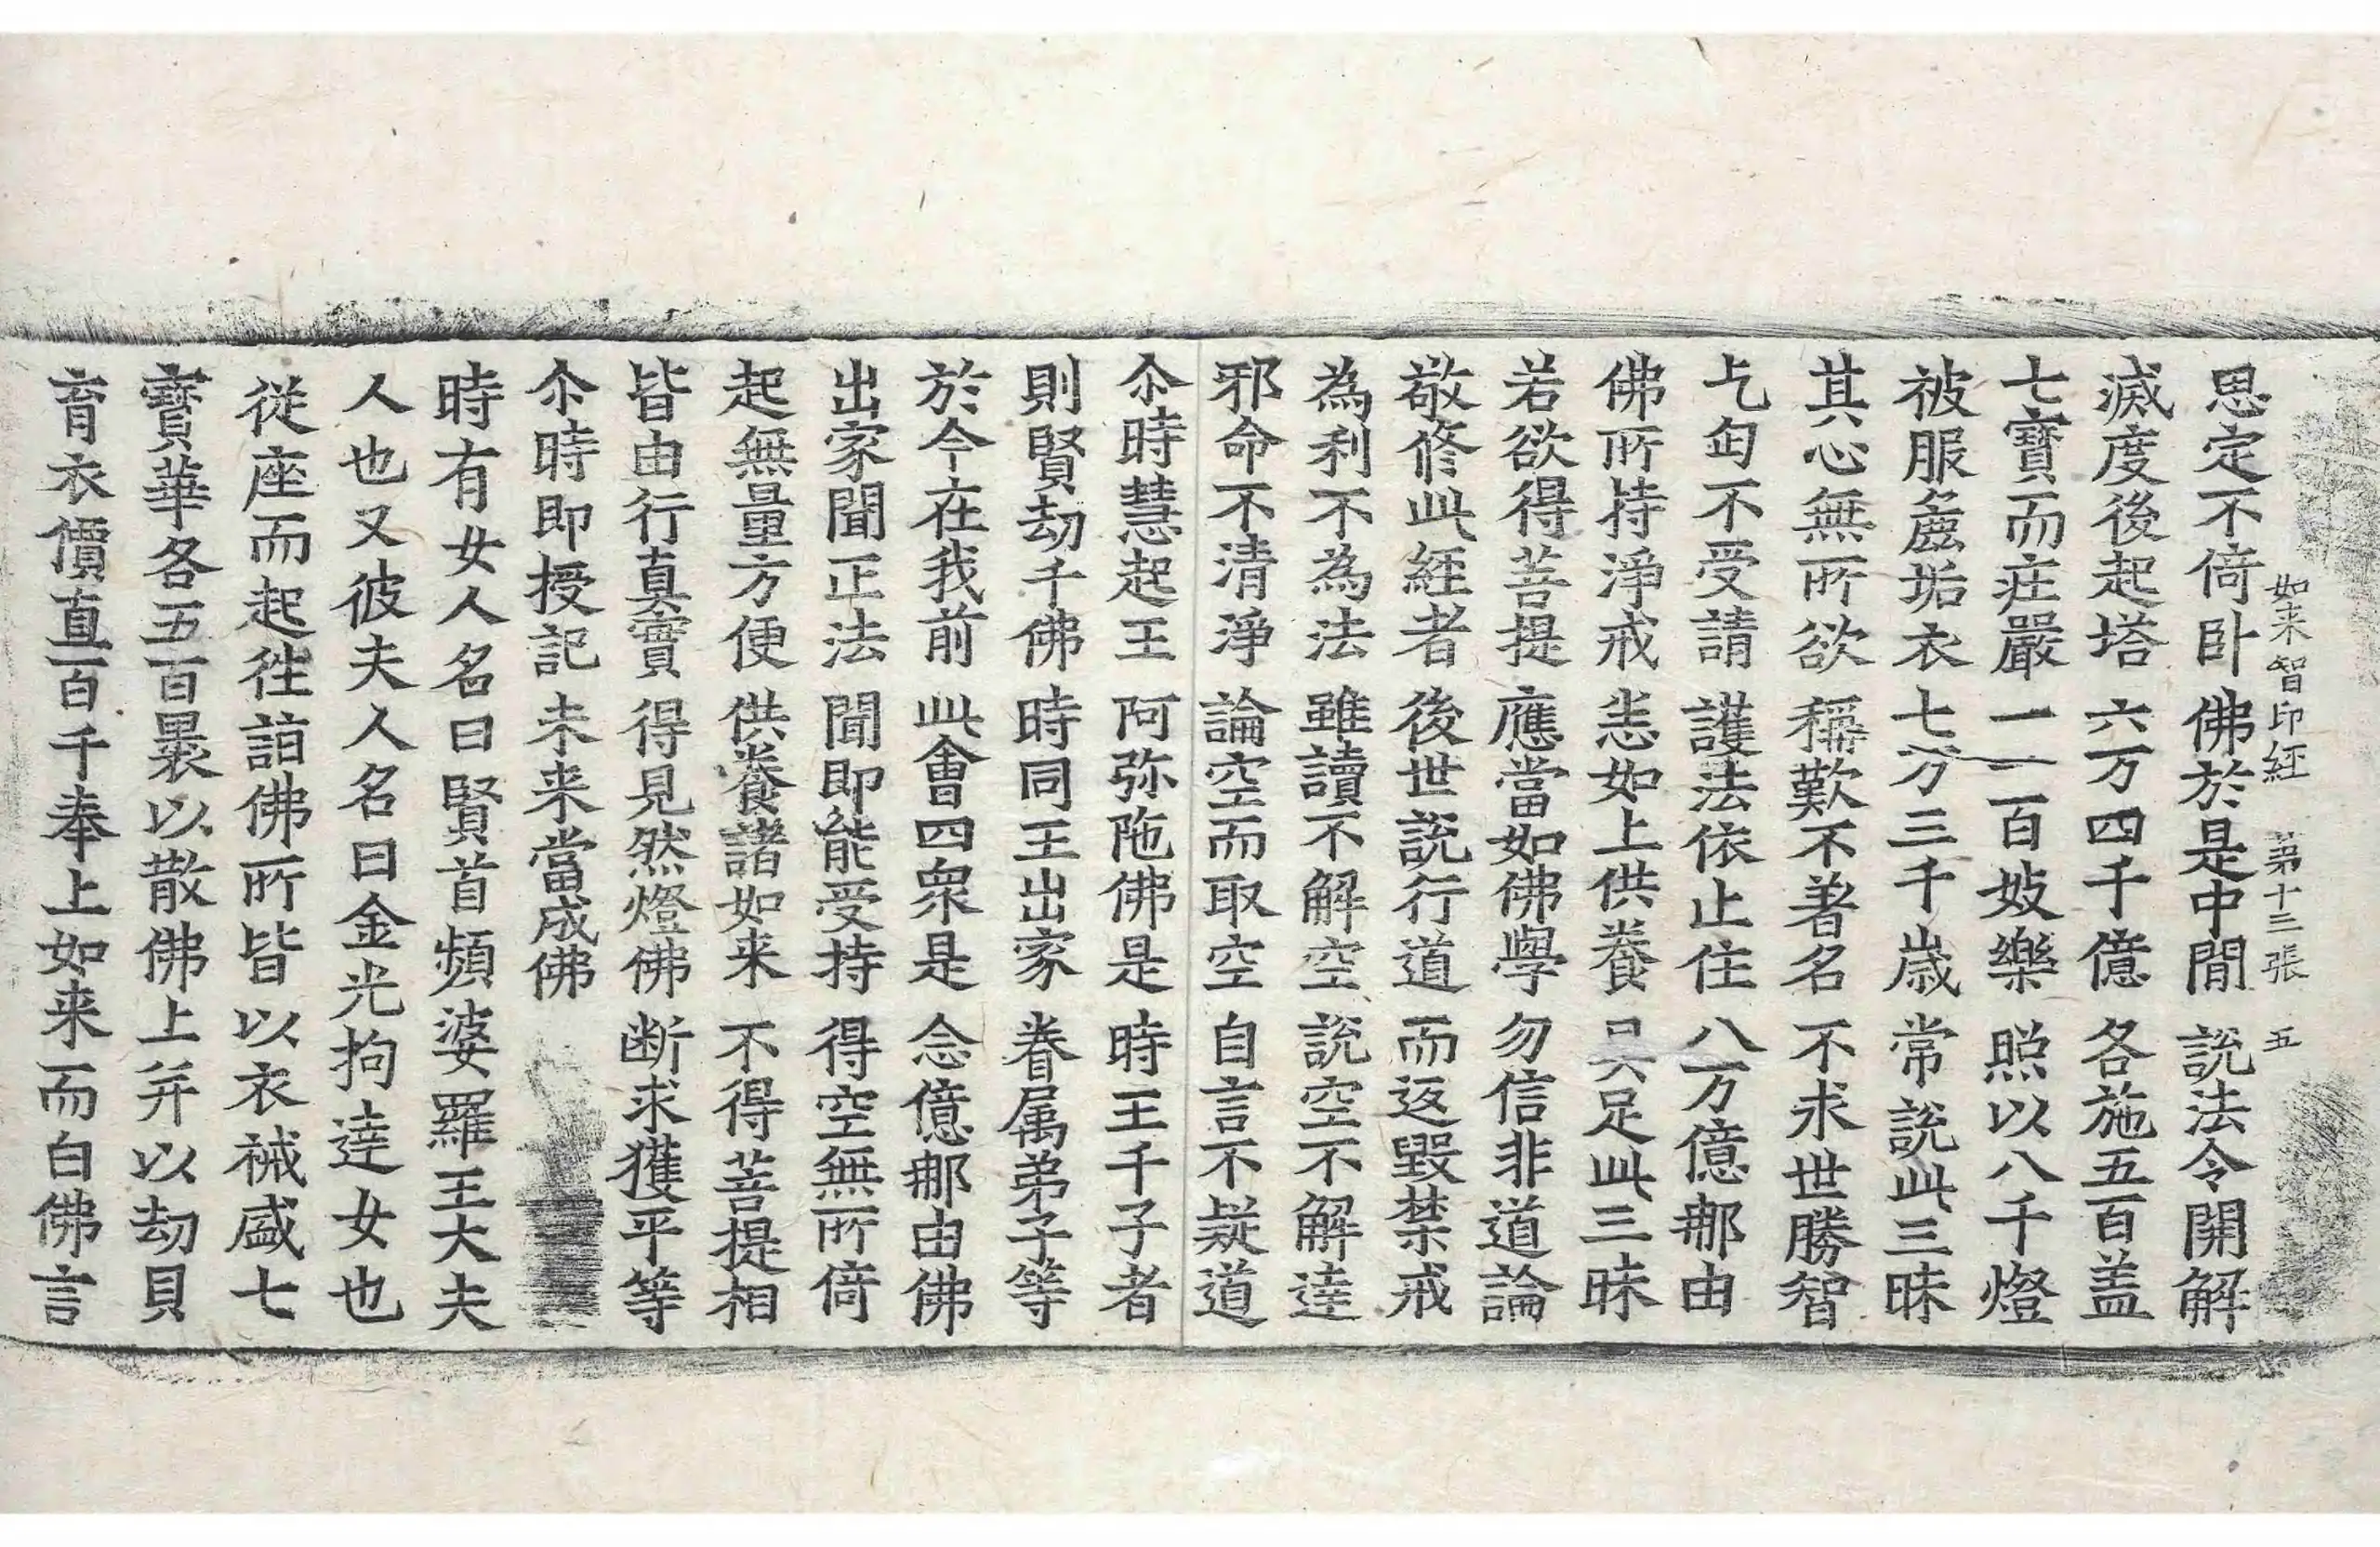 如来智印経 第十三張 五
思定不倚卧 佛於是中閒 説法令開解
滅度後起塔 六万四千億 各施五百盖
七寶而荘嚴 一一百妓樂 照以八千燈
被服麁垢衣 七万三千歳 常説此三昧
其心無所欲 稱歎不著名 不求世勝智
乞匃不受請 護法依止住 八万億那由
佛所持淨戒 恙如上供養 具足此三昧
若欲得菩提 應當如佛學 勿信非道論
敬修此經者 後世説行道 而返毀禁戒
為利不為法 雖讀不解空 説空不解達
邪命不清淨 論空而取空 自言不疑道
尒時慧起王 阿弥陁佛是 時王千子者
則賢劫千佛 時同王出家 眷属弟子等
於今在我前 此會四衆是 念億那由佛
出家聞正法 聞即能受持 得空無所倚
起無量方便 供養諸如来 不得菩提相
皆由行真實 得見然燈佛 断求獲平等
尒時即授記 未来當成佛
時有女人名曰賢首頻婆羅王大夫
人也又彼夫人名曰金光拘達女也
從座而起往詣佛所皆以衣裓盛七
寶華各五百褁以散佛上并以劫貝
育衣價直百千奉上如来而白佛言